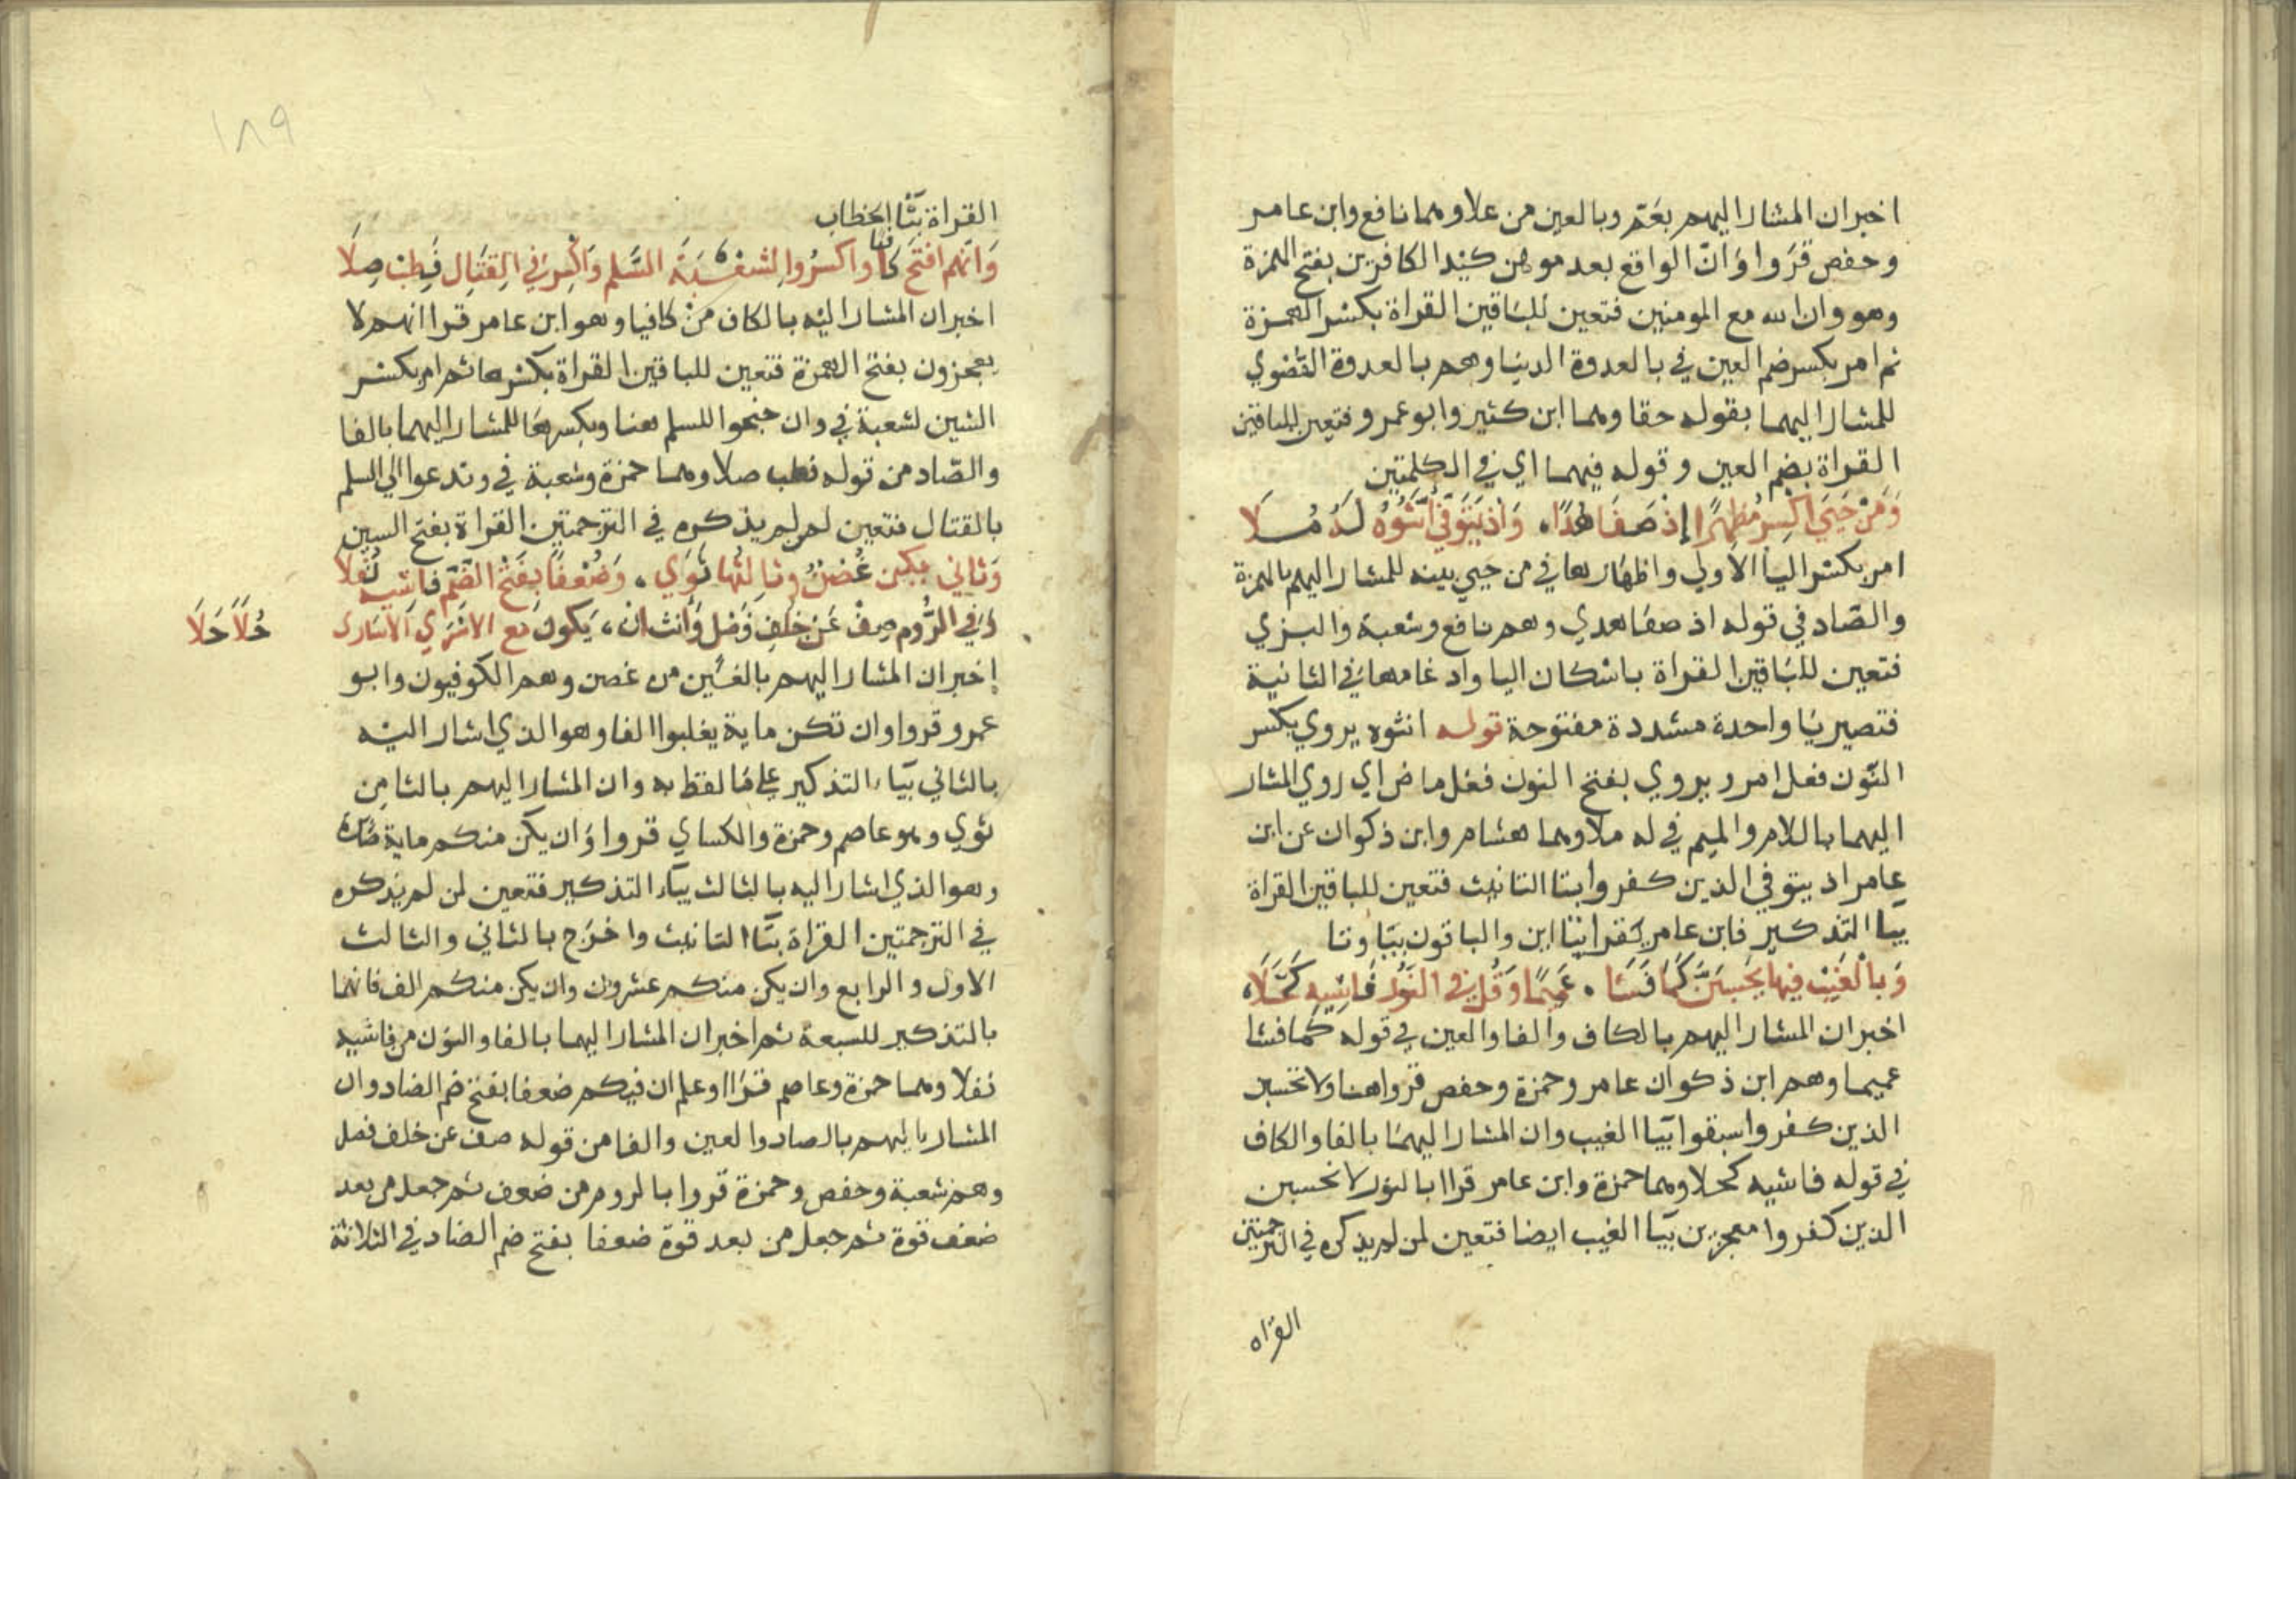 اخبران المشار اليهم بعم وبالعين من علا وهما نافع وابن عامر
وحفص قروا وان الواقع بعد موهن كيد الكافرين بفتح الهمزة
وهو وان الله مع المومنين فتعين للباقين القراة بكسر الهمزة
ثم امر بكسر ضم العين في بالعدوة الدنيا وهم بالعدوة القصوي
للمشار اليهما بقوله حقا وهما ابن كثير وابو عمرو فتعين للباقين
القراة بضم العين وقوله فيهما اي في الكلمتين
وَمَنْ حَيِيَ اكْسِرْ مُظْهِرًا إِذْ صَفَا هُدًا، وَاذ يَتَوَفَّى أَنِّثُوْهُ لَهُ مُلَا
امر بكسر اليا الاولي واظهارها في من حيي بينه للمشار اليهم بالهمزة
والصاد في قوله اذ صفا هدي وهم نافع وشعبة والبزي
فتعين للباقين القراة باسكان اليا وادغامها في الثانية
فتصير يا واحدة مشددة مفتوحة قوله انثوه يروي بكسر
النون فعل امر ويروي بفتح النون فعل ماض اي روي المشار
اليهما باللام والميم في له ملا وهما هشام وابن ذكوان عن ابن
عامر اذ يتوفي الذين كفروا بتا التانيث فتعين للباقين القراة
بيا التذكير فابن عامر يقرا بتا اين والباقون بيا وتا
وَبِالْغَيْبِ فِيهَا يَحْسِبَنَّ كَمَا فَشَا، عَمِيمًا وَقُلْ فِي النُّورِ فَاشِيهِ كَحَّلَا
اخبران المشار اليهم بالكاف والفا والعين في قوله كما فشا
عميما وهم ابن ذكوان عامر وحمزة وحفص قروا هنا ولا تحسبن
الذين كفروا سبقوا بيا الغيب وان المشار اليهما بالفا والكاف
في قوله فاشيه كحلا وهما حمزة وابن عامر قراا بالنور لا تحسبن
الذين كفروا معجزين بيا الغيب ايضا فتعين لمن لم يذكره في الترجمتين
القراه
١٨٩
القراة بتا الخطاب
وَانَّهُم افْتَحْ كَافيا وَاكْسِرُوا لِشُعْبَةَ السَّلْمِ وَاكْسِرْ فِي الْقِتَالِ فَطِبْ صِلَا
اخبران المشار اليه بالكاف من كافيا وهو ابن عامر قرا انهم لا
يعجزون بفتح الهمزة فتعين للباقين القراة بكسرها ثم امر بكسر
الشين لشعبة في وان جنحوا للسلم هنا وبكسرها للمشار اليهما بالفا
والصاد من قوله فطب صلا وهما حمزة وشعبة في وتدعوا الي السلم
بالقتال فتعين لمن لم يذكره في الترجمتين القراة بفتح السين
وَثَانِي يَكُنْ غُصْنٌ وَثَالِثُهَا ثَوَي، وَضُعْفًا بِفَتْحِ الضَّمِّ فَاشِيهِ نُفِّلَا
وَفِي الرُّومِ صِفْ عَنْ خُلْفِ فَصْلٍ وَأَنِّث ان، يَكُونَ مَع الاسْرَي الاسَارى حُلًا حَلَا
اخبران المشار اليهم بالغين من غصن وهم الكوفيون وابو
عمرو قروا وان تكن ماية يغلبوا الفا وهو الذي اشار اليه
بالثاني بياء التذكير علي ما لفظ به وان المشار اليهم بالثا من
ثوي وهو عاصم وحمزة والكساي قروا وان يكن منكم ماية صابرة
وهو الذي اشار اليه بالثالث بياء التذكير فتعين لمن لم يذكره
في الترجمتين القراة بتا التانيث واخرج بالثاني والثالث
الاول والرابع وان يكن منكم عشرون وان يكن منكم الف فانهما
بالتذكير للسبعة ثم اخبران المشار اليهما بالفا والنون من فاشيه
نفلا وهما حمزة وعاصم قراا وعلم ان فيكم ضعفا بفتح ضم الضاد وان
المشار اليهم بالصاد والعين والفا من قوله صف عن خلف فصل
وهم شعبة وحفص وحمزة قروا بالروم من ضعف ثم جعل من بعد
ضعف قوة ثم جعل من بعد قوة ضعفا بفتح ضم الضاد في الثلاثة